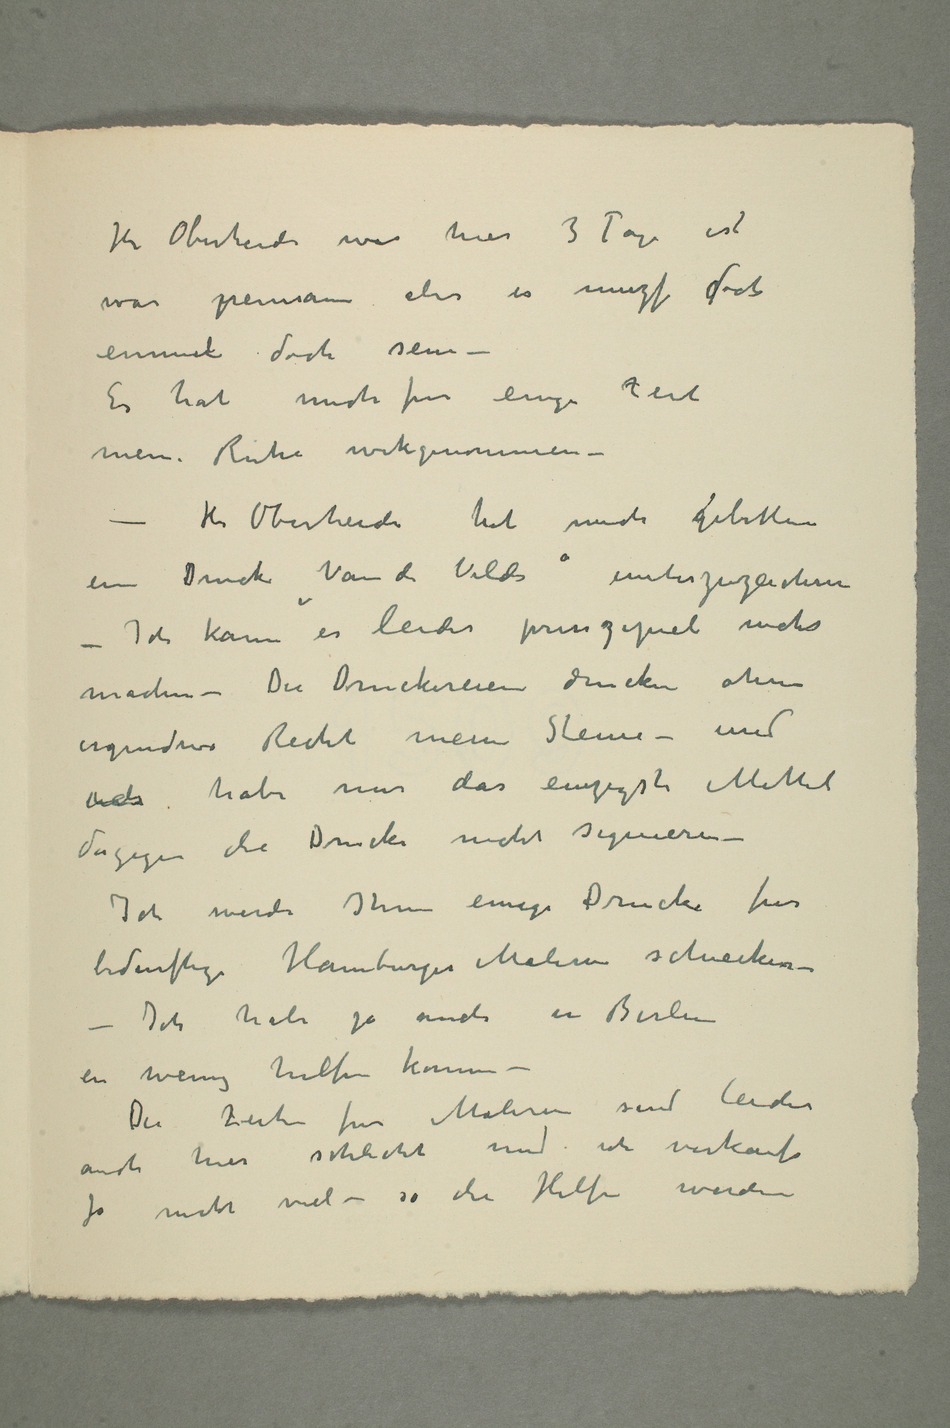 Hr Oberheide war hier 3 Tage est
war penisam aber es muszs doch
einmal doch sein –
Er hat mich für einige Zeit
meine Ruhe wekgenommen –
– Hr Oberheide hat mich gebitten
ein Druck Van de Velde unterzuzeichnen
– Ich kann es leider prinzipiel nicht
machen – Die Druckereien drucken ohne
irgendwo Recht meine Steine – und
ich habe nur das einzigste Mittel
dagegen die Drucke nicht signieren –
Ich werde Ihnen einige Drucke für
bedürftige Hamburger Malern schicken –
– Ich habe ja auch in Berlin
en wenig helfen können –
Die Zeiten für Malern sind leider
auch hier schlecht und ich verkaufe
ja nicht viel – so die Hilfe werden